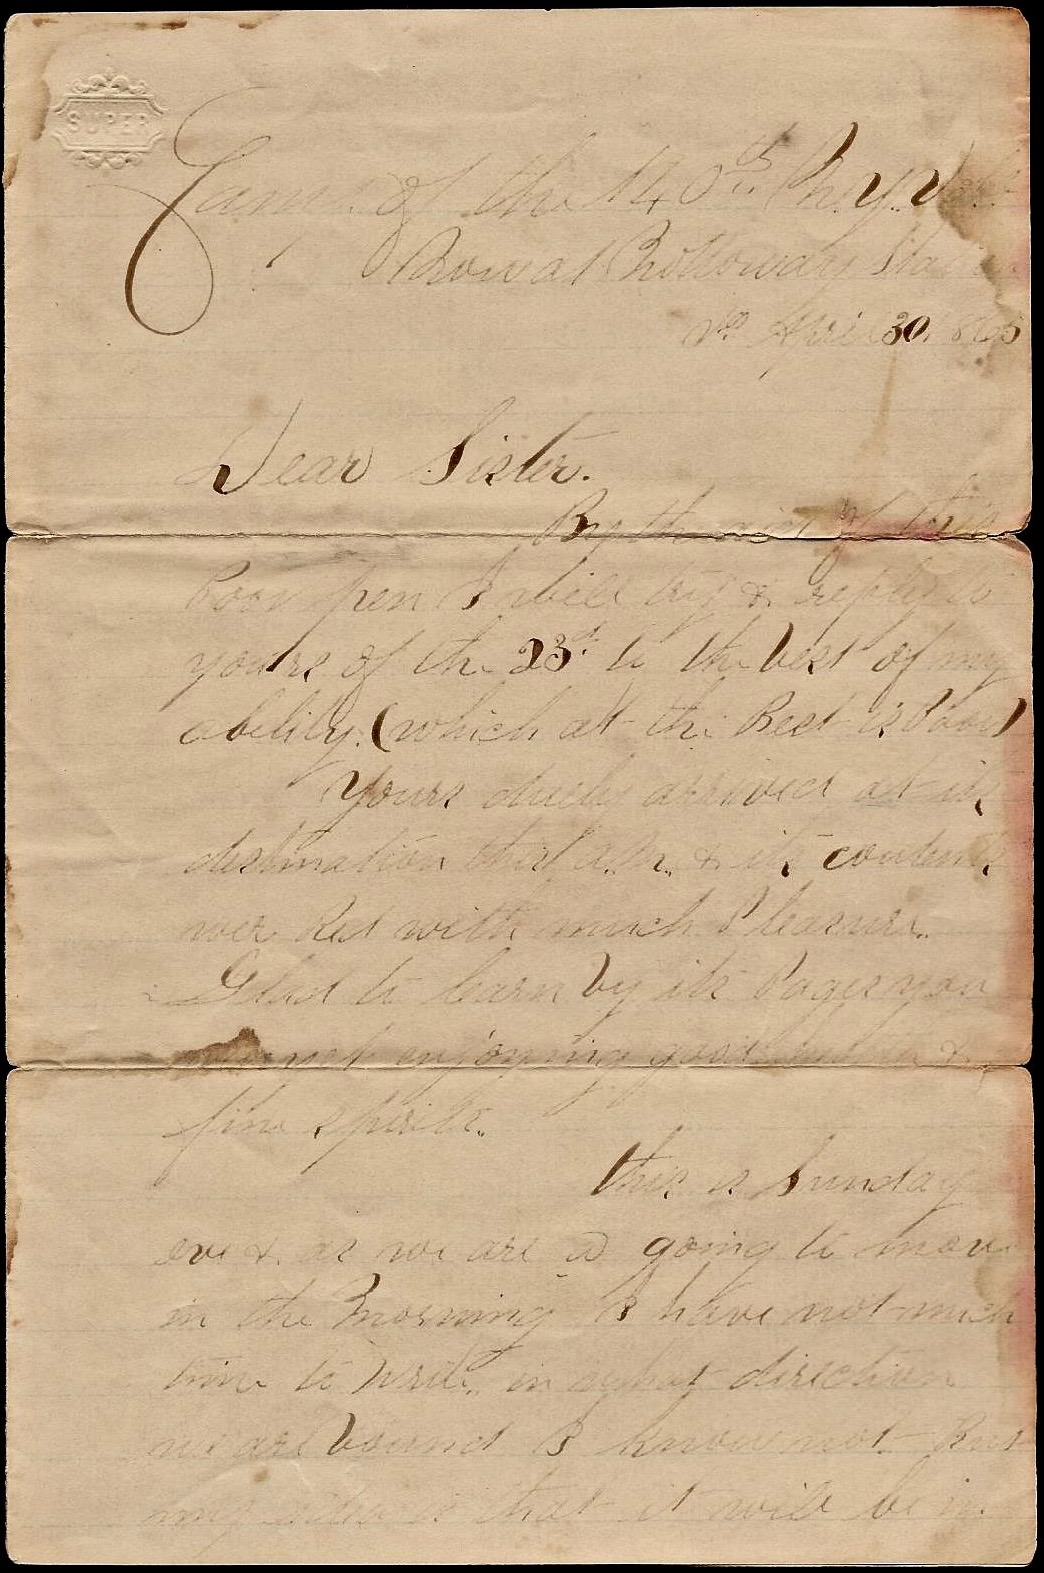 SUPER
Camp of the 140th N.Y.V.
Now at Holloway Station
Va April 30 1865
Dear Sister.
By the aid of this
Poor pen I will try & reply to
yours of the 23d to the best of my
ability. (which at the Best is Poor)
Yours duely arrived at its
destination this A.M. & its contents
wer Red with much Pleasure.
Glad to learn by its Pages you
yet enjoying good health &
fine spirits.
this is Sunday
eve & as we are a going to move
in the Morning I have not much
time to write. in what direction
we are bound I know not But
my idea is that it will be in